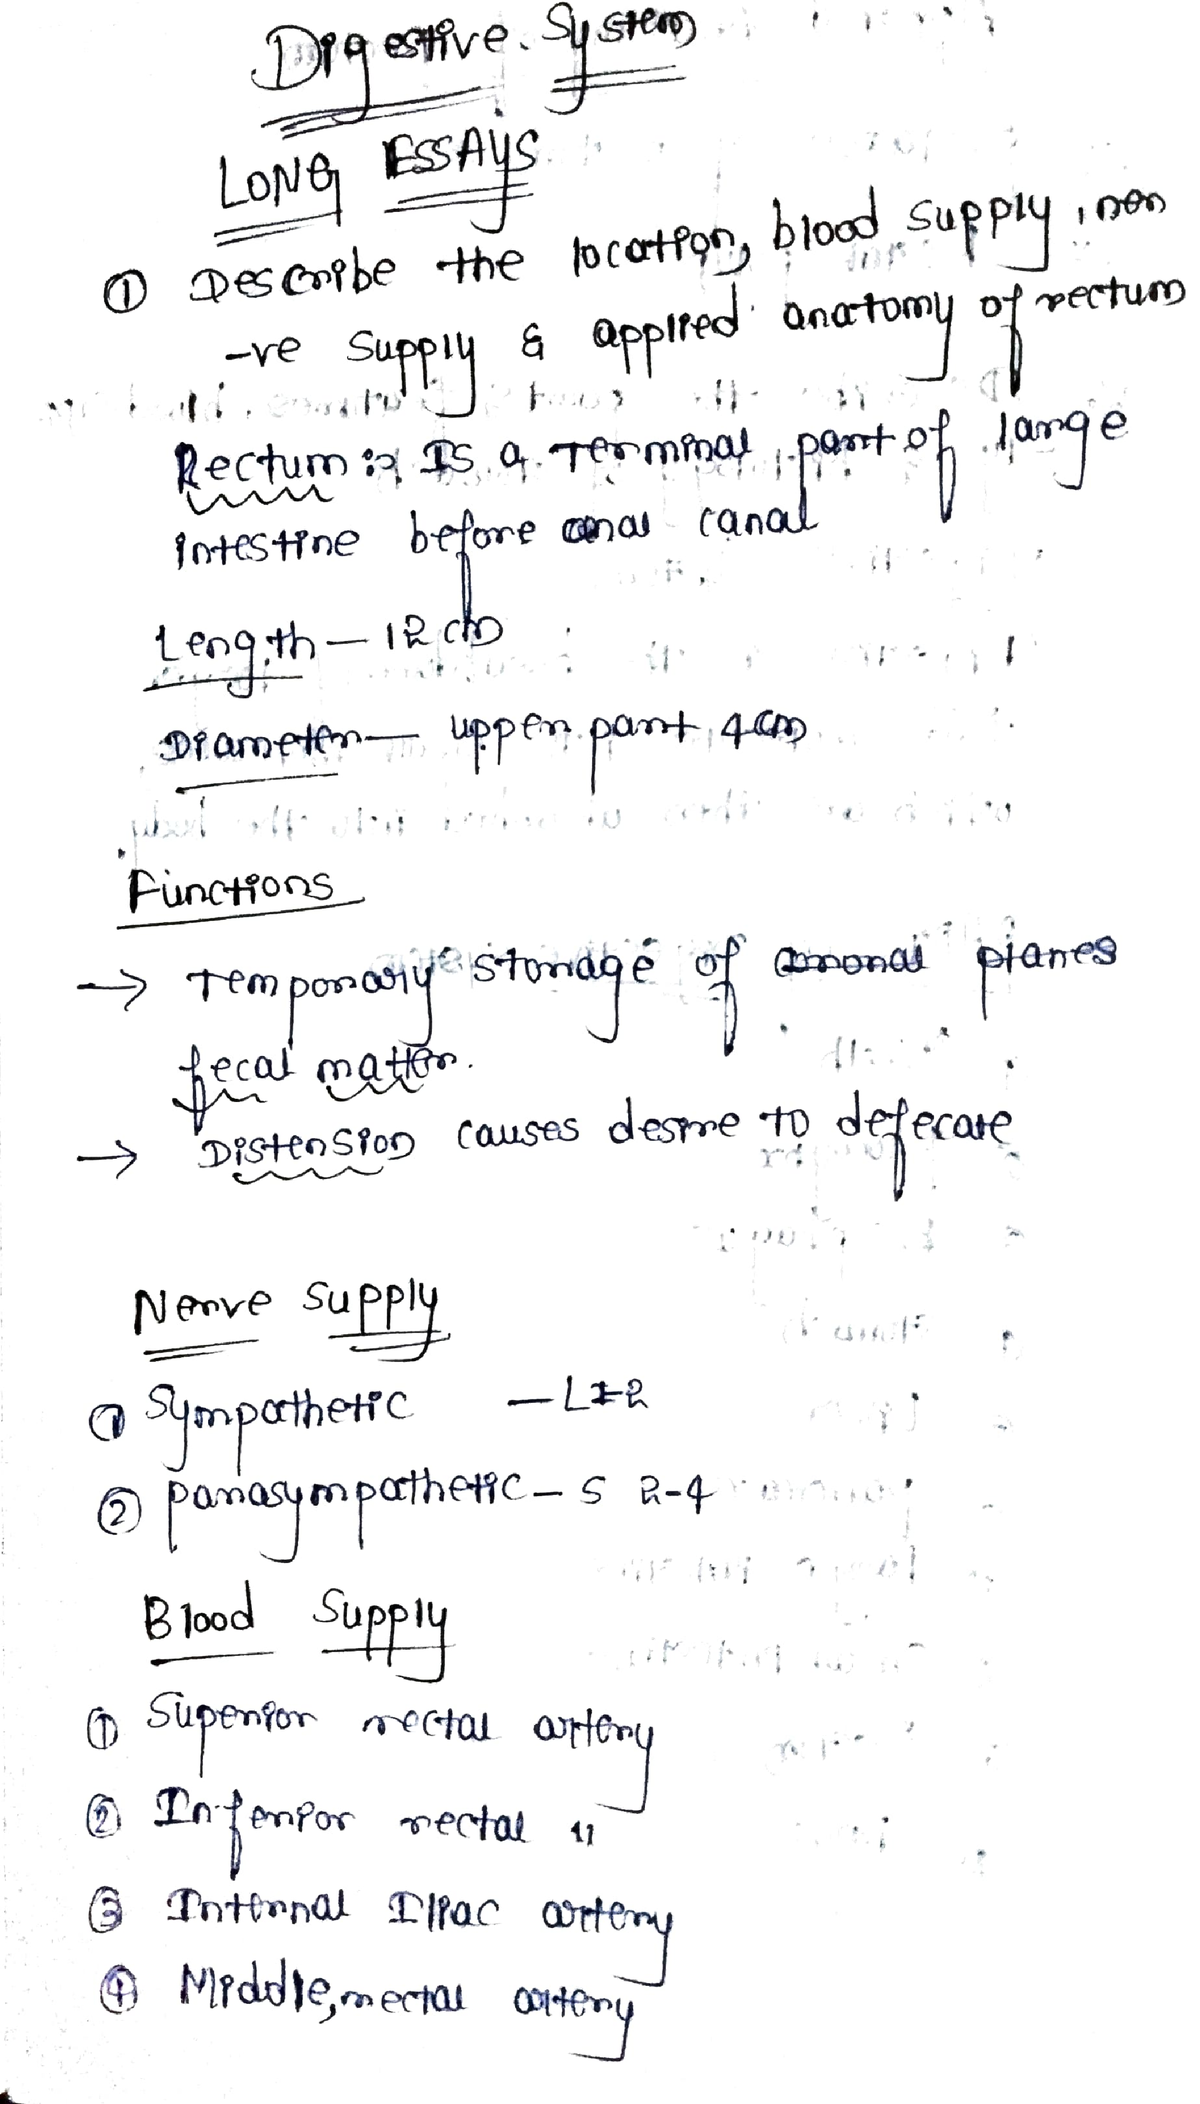 Digestive System
LONG ESSAYS
① Describe the location, blood supply, ner
-ve supply & applied anatomy of rectum
Rectum :- Is a Terminal part of large
intestine before anal canal
Length - 12 cm
Diameter - upper part 4cm
Functions
→ Temporary storage of planes
fecal matter.
→ Distension causes desire to defecate
Nerve Supply
① Sympathetic - L1-2
② parasympathetic - S 2-4
Blood Supply
① Superior rectal artery
② Inferior rectal "
③ Internal Iliac artery
④ Middle, rectal artery